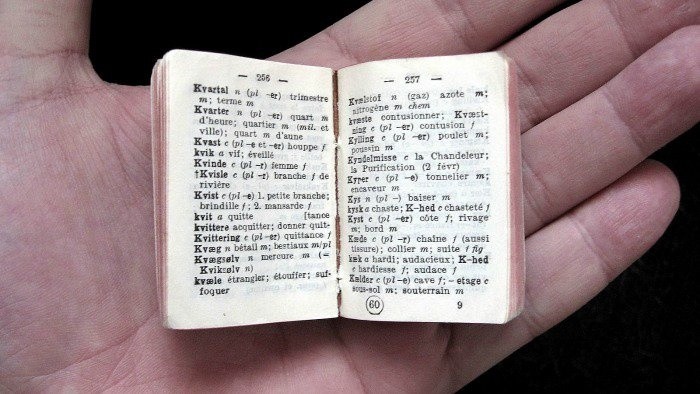 — 256 —
Kvartal n (pl -er) trimestre
m; terme m
Kvarter n (pl -er) quart m
d'heure; quartier m (mil. et
ville); quart m d'aune
Kvast c (pl -e et -er) houppe f
kvik a vif; éveillé
Kvinde c (pl -r) femme f
†Kvisle c (pl -r) branche f de
rivière
Kvist c (pl -e) 1. petite branche;
brindille f; 2. mansarde f
kvit a quitte [tance
kvittere acquitter; donner quit-
Kvittering c (pl -er) quittance f
Kvæg n bétail m; bestiaux m/pl
Kvægsølv n mercure m (=
Kviksølv n)
kvæle étrangler; étouffer; suf-
foquer
— 257 —
Kvælstof n (gaz) azote m;
nitrogène m chem
kvæste contusionner; Kvæst-
ning c (pl -er) contusion f
Kylling c (pl -er) poulet m;
poussin m
Kyndelmisse c la Chandeleur;
la Purification (2 févr)
Kyper c (pl -e) tonnelier m;
encaveur m
Kys n (pl -) baiser m
kysk a chaste; K-hed c chasteté f
Kyst c (pl -er) côte f; rivage
m; bord m
Kæde c (pl -r) chaîne f (aussi
tissure); collier m; suite f fig
kæk a hardi; audacieux; K-hed
c hardiesse f; audace f
Kælder c (pl -e) cave f; -etage c
sous-sol m; souterrain m
60 9